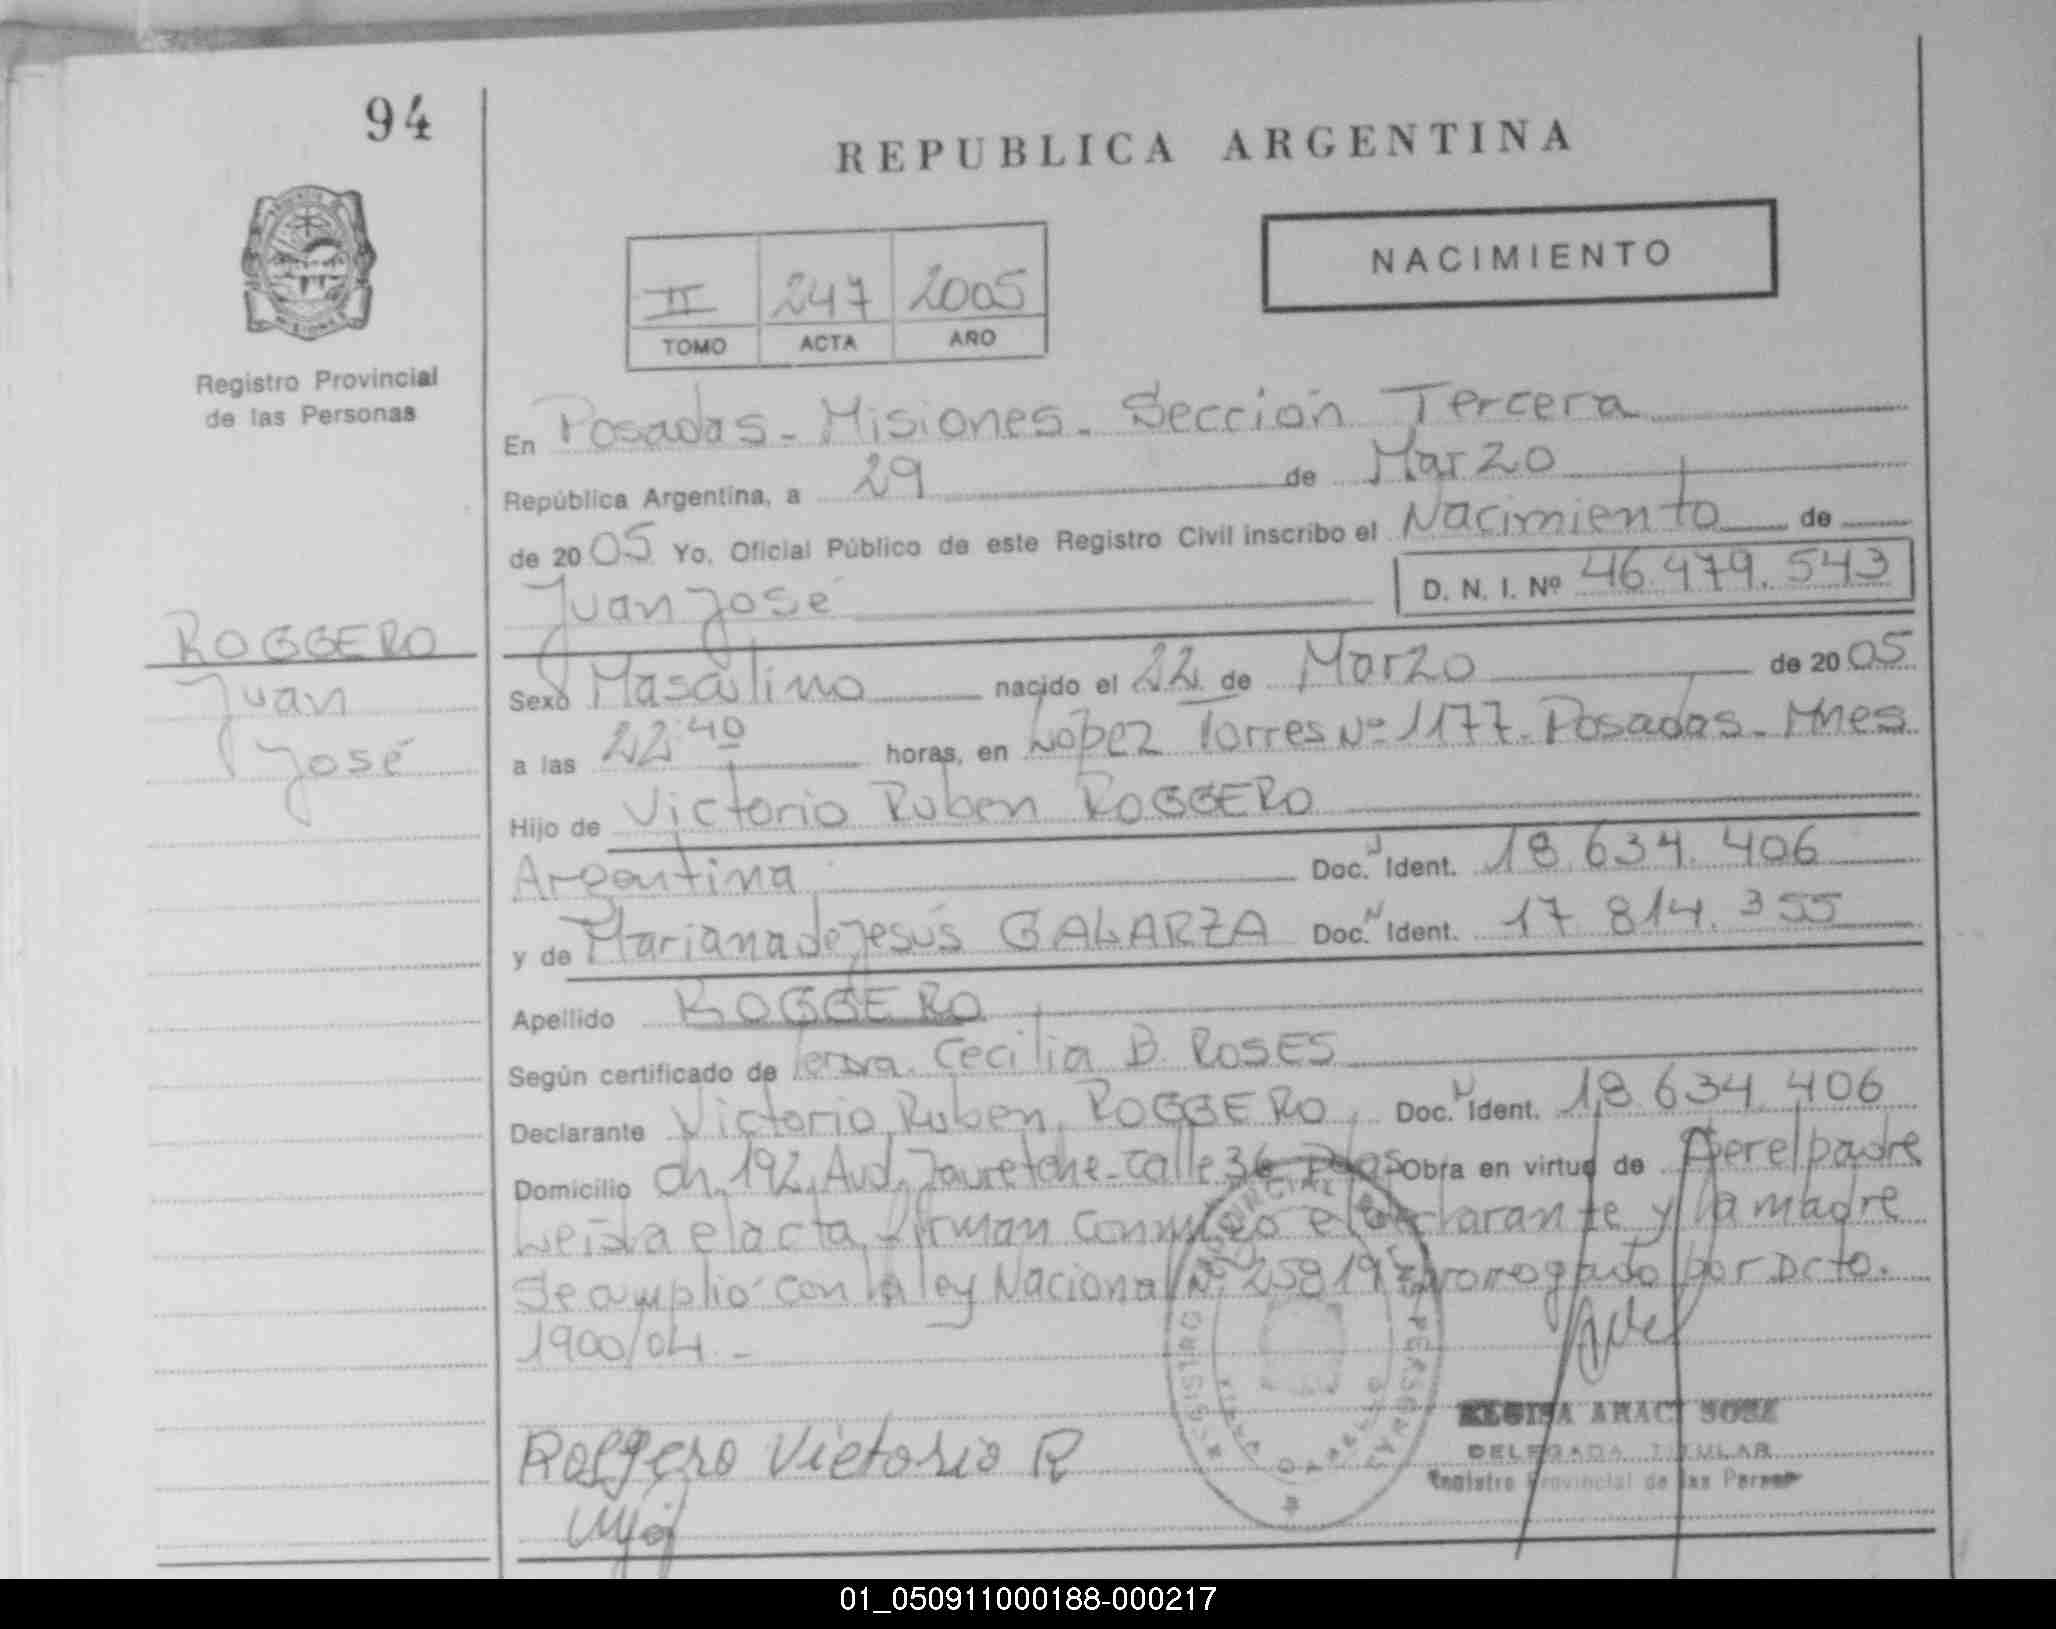 94
REPUBLICA ARGENTINA
NACIMIENTO
II 247 2005
TOMO ACTA AÑO
Registro Provincial
de las Personas
En Posadas - Misiones - Sección Tercera
República Argentina, a 29 de Marzo
de 2005 Yo, Oficial Público de este Registro Civil inscribo el Nacimiento de
Juan José D. N. I. Nº 46.479.543
ROGGERO
Juan
José
Sexo Masculino nacido el 22 de Marzo de 2005
a las 22:40 horas, en López Torres Nº 1177 - Posadas - Mnes.
Hijo de Victorio Ruben ROGGERO
Argentina Doc. Ident. 18.634.406
y de Mariana de Jesús GALARZA Doc. Ident. 17.814.355
Apellido ROGGERO
Según certificado de Cecilia B. ROSES
Declarante Victorio Ruben ROGGERO Doc. Ident. 18.634.406
Domicilio Ch. 192, Avd. Jauretche - Calle 36 - Pdas Obra en virtud de Ser el padre
Leída el acta, firman conmigo el declarante y la madre
Se amplió con la ley Nacional Nº 25819 prorrogado por Dcto.
1900/04.-
Roggero Victorio R
DELEGADA TITULAR
Registro Provincial de las Person
01_050911000188-000217